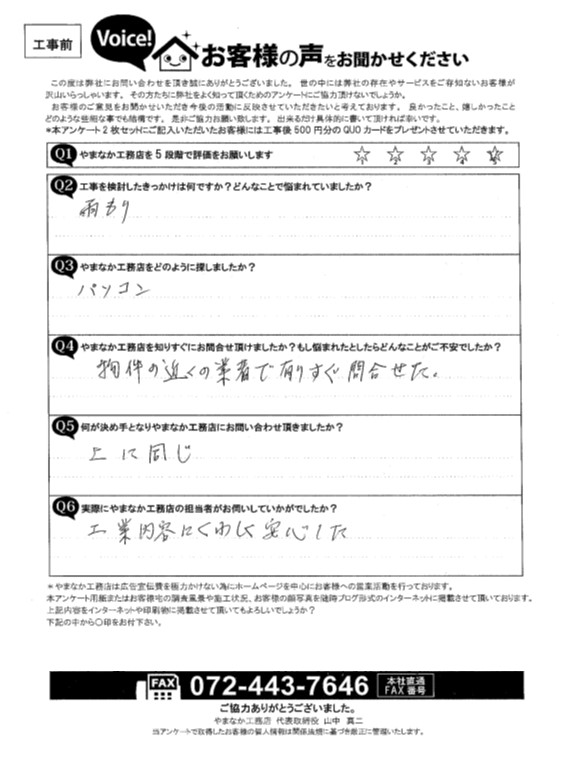 工事前
Voice!
お客様の声をお聞かせください
この度は弊社にお問い合わせを頂き誠にありがとうございました。世の中には弊社の存在やサービスをご存知ないお客様が
沢山いらっしゃいます。その方たちに弊社をよく知って頂くためのアンケートにご協力頂けないでしょうか。
お客様のご意見をお聞かせいただき今後の活動に反映させていただきたいと考えております。良かったこと、嬉しかったこと
どのような些細な事でも結構です。是非ご協力お願い致します。出来るだけ具体的に書いて頂ければ幸いです。
*本アンケート2枚セットにご記入いただいたお客様には工事後500円分のQUOカードをプレゼントさせていただきます。
Q1 やまなか工務店を5段階で評価をお願いします
1 2 3 4 5
Q2 工事を検討したきっかけは何ですか?どんなことで悩まれていましたか?
雨もり
Q3 やまなか工務店をどのように探しましたか?
パソコン
Q4 やまなか工務店を知りすぐにお問合せ頂けましたか?もし悩まれたとしたらどんなことがご不安でしたか?
物件の近くの業者で有りすぐ問合せた。
Q5 何が決め手となりやまなか工務店にお問い合わせ頂きましたか?
上に同じ
Q6 実際にやまなか工務店の担当者がお伺いしていかがでしたか?
工業内容にくわしく安心した
*やまなか工務店は広告宣伝費を極力かけない為にホームページを中心にお客様への営業活動を行っております。
本アンケート用紙またはお客様宅の調査風景や施工状況、お客様の顔写真を随時ブログ形式のインターネットに掲載させて頂いております。
上記内容をインターネットや印刷物に掲載させて頂いてもよろしいでしょうか?
下記の中から〇印をお付下さい。
FAX 072-443-7646 本社直通
FAX番号
ご協力ありがとうございました。
やまなか工務店 代表取締役 山中 真二
当アンケートで取得したお客様の個人情報は関係法規に基づき厳正に管理いたします。